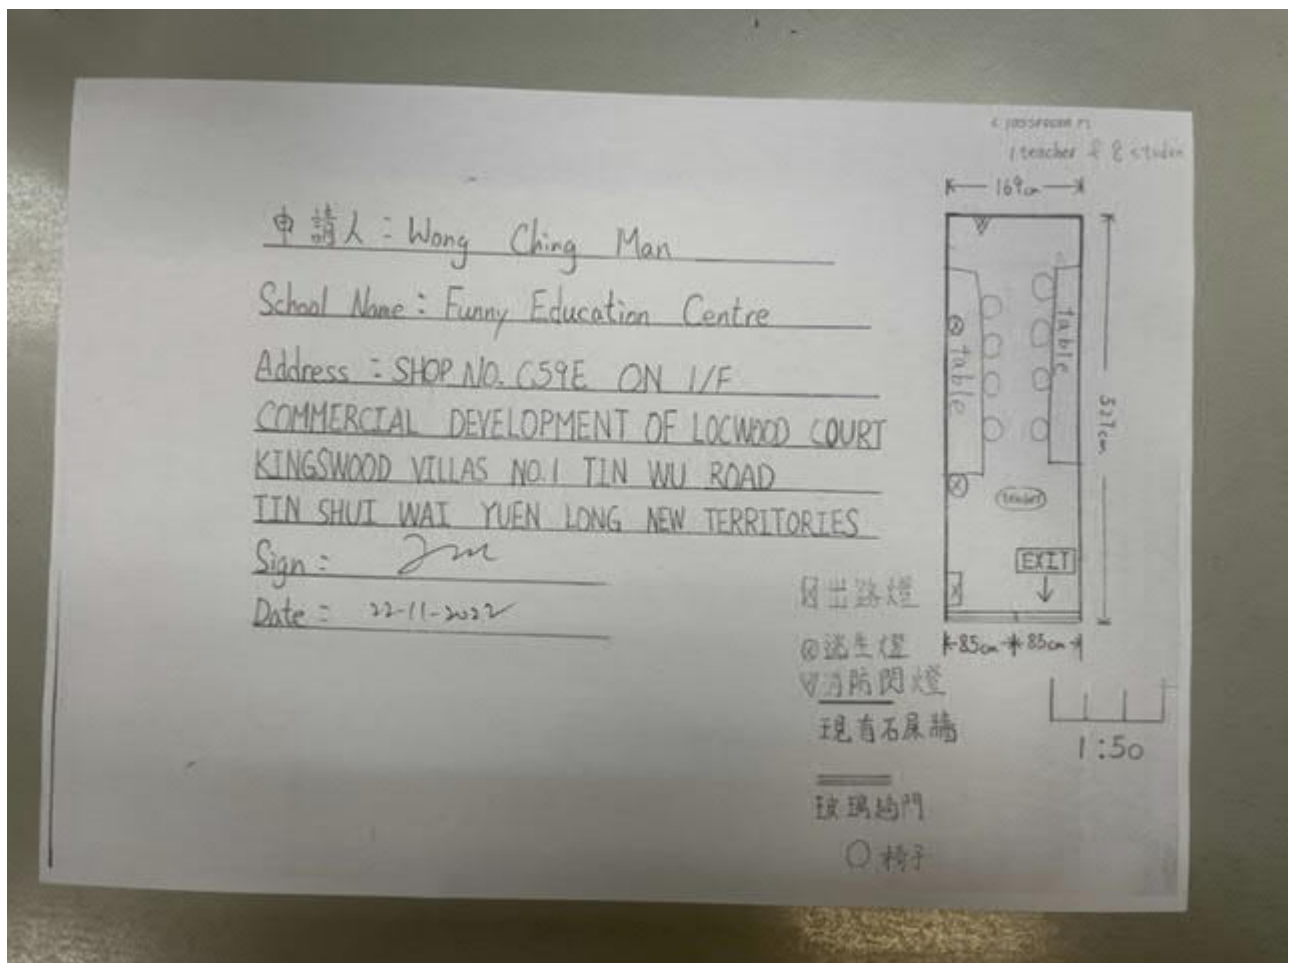 申請人: Wong Ching Man
School Name: Funny Education Centre
Address: SHOP NO. C59E ON 1/F
COMMERCIAL DEVELOPMENT OF LOCWOOD COURT
KINGSWOOD VILLAS NO.1 TIN WU ROAD
TIN SHUI WAI YUEN LONG NEW TERRITORIES
Sign:
Date: 22-11-2022
1 teacher & 8 studen
169cm
table
table
527cm
teacher
EXIT
85cm
85cm
出路燈
逃生燈
消防閃燈
現有石屎牆
玻璃趟門
椅子
1:50